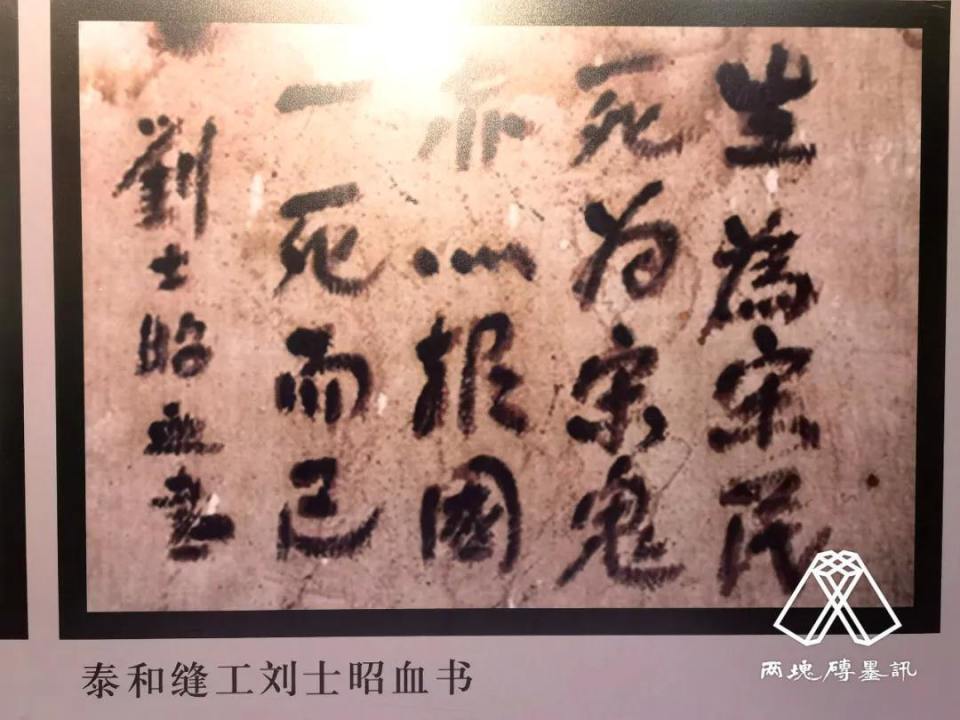 生為宋民
死为宋鬼
赤心报國
一死而已
劉士昭血書
泰和缝工刘士昭血书
两塊磚墨訊